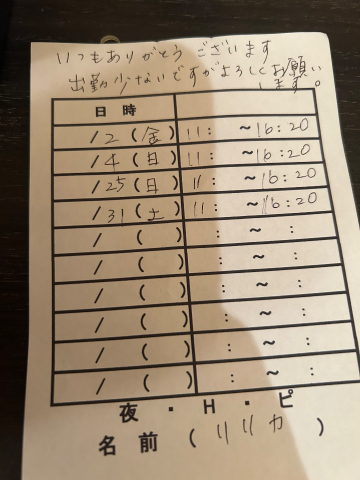 いつもありがとうございます
出勤少ないですがよろしくお願い
します。
日時
/2(金) 11: ~16:20
/4(日) 11: ~16:20
/25(日) 11: ~16:20
/31(土) 11: ~16:20
/ ( ) : ~ :
/ ( ) : ~ :
/ ( ) : ~ :
/ ( ) : ~ :
/ ( ) : ~ :
/ ( ) : ~ :
夜・H・ピ
名前(リリカ)